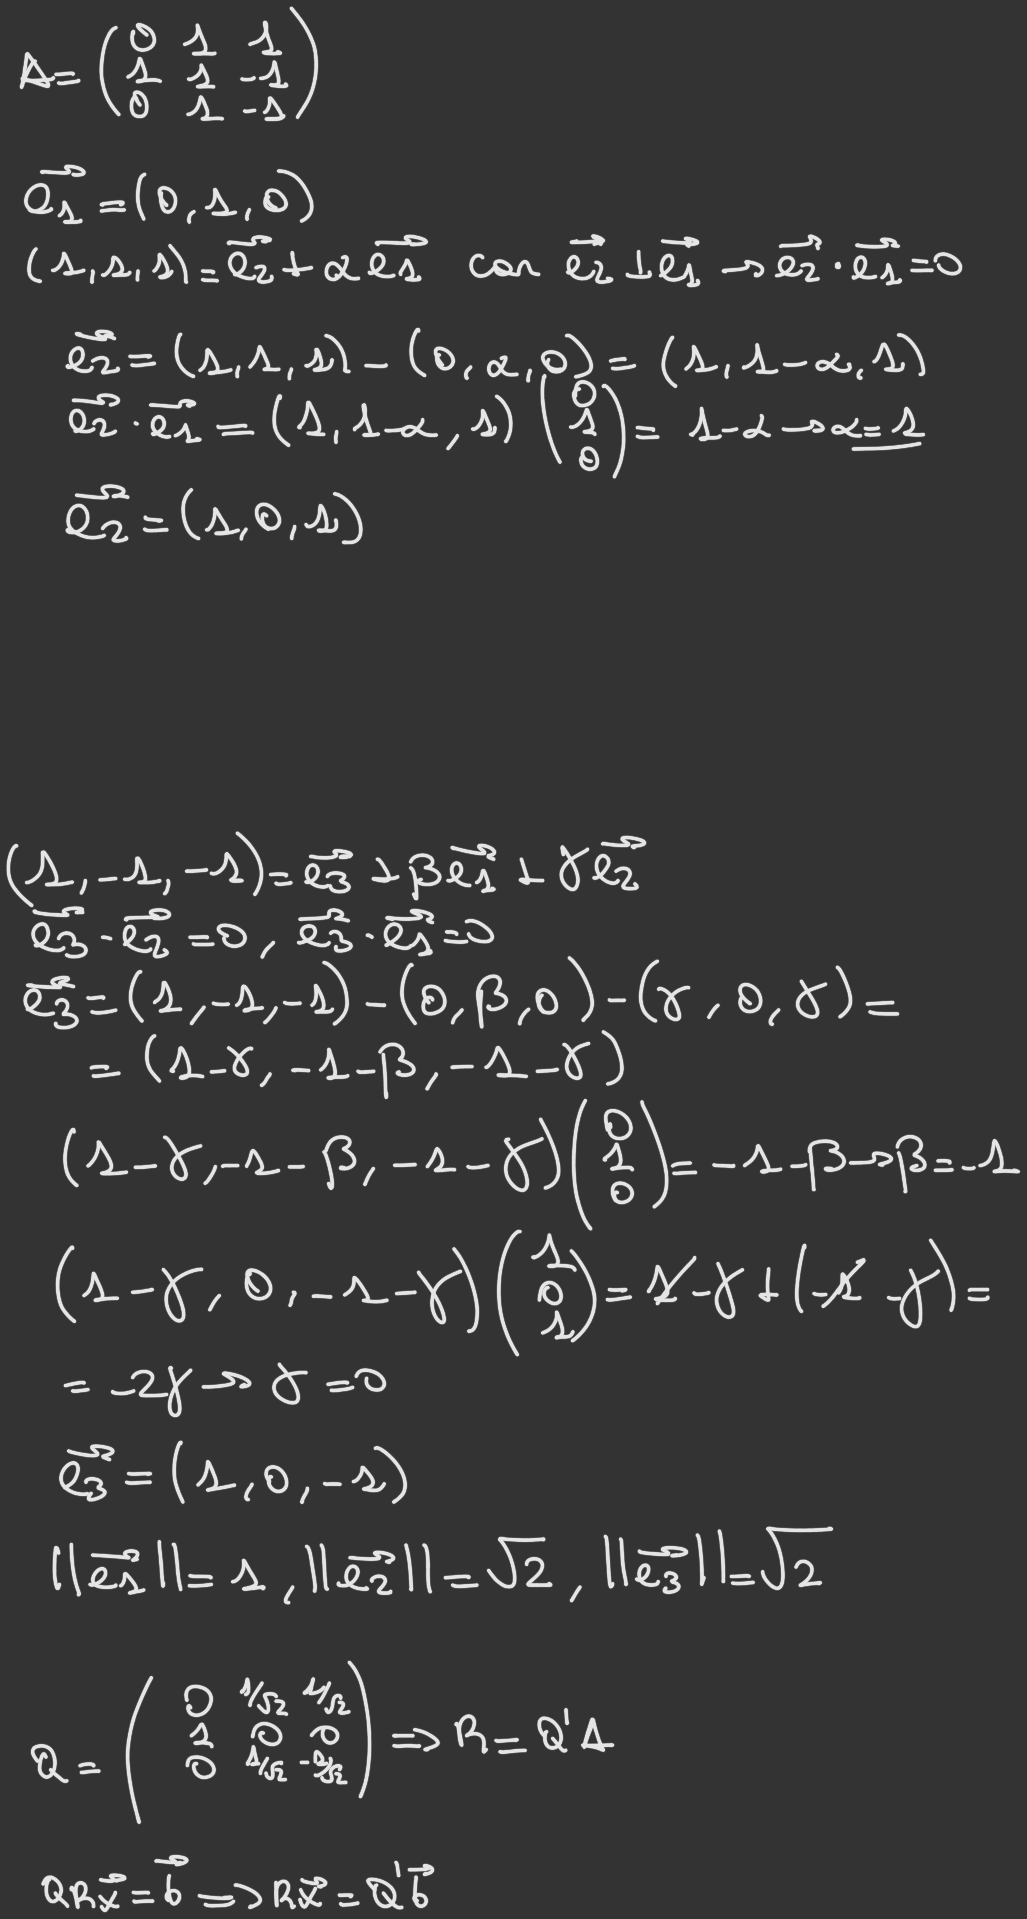 A = ( 0 1 1
1 1 -1
0 1 -1 )
e₁⃗ = (0,1,0)
(1,1,1) = e₂⃗ + α e₁⃗ con e₂⃗ ⊥ e₁⃗ → e₂⃗ · e₁⃗ = 0
e₂⃗ = (1,1,1) - (0,α,0) = (1,1-α,1)
e₂⃗ · e₁⃗ = (1,1-α,1) (0 1 0) = 1-α → α=1
e₂⃗ = (1,0,1)
(1,-1,-1) = e₃⃗ + β e₁⃗ + γ e₂⃗
e₃⃗ · e₂⃗ = 0, e₃⃗ · e₁⃗ = 0
e₃⃗ = (1,-1,-1) - (0,β,0) - (γ,0,γ) =
= (1-γ, -1-β, -1-γ)
(1-γ, -1-β, -1-γ) (0 1 0) = -1-β → β=-1
(1-γ, 0, -1-γ) (1 0 1) = 1-γ + (-1-γ) =
= -2γ → γ = 0
e₃⃗ = (1,0,-1)
||e₁⃗|| = 1, ||e₂⃗|| = √2, ||e₃⃗|| = √2
Q = ( 0 1/√2 1/√2
1 0 0
0 1/√2 -1/√2 ) ⇒ R = Q'A
QRx⃗ = b⃗ ⇒ Rx⃗ = Q'b⃗